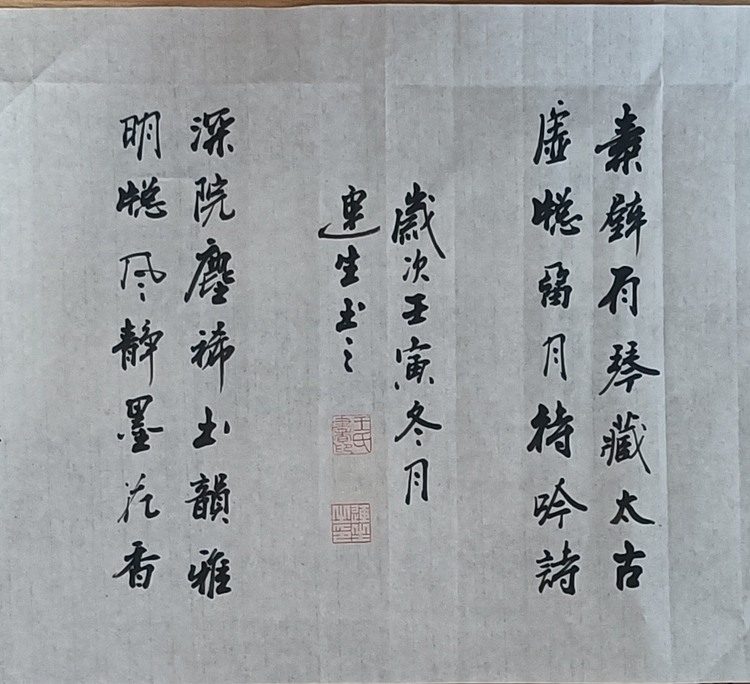 素壁有琴藏太古
虛牕留月待吟詩
歲次壬寅冬月
運生書之
深院塵稀書韻雅
明牕风靜墨花香